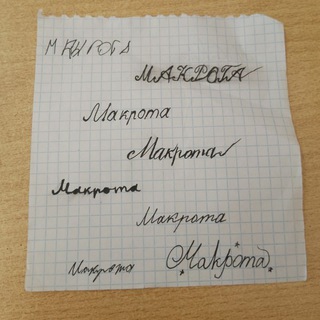 МАКРОТА
МАКРОТА
Макрота
Макрота
Макрота
Макрота
Макрота
Макрота